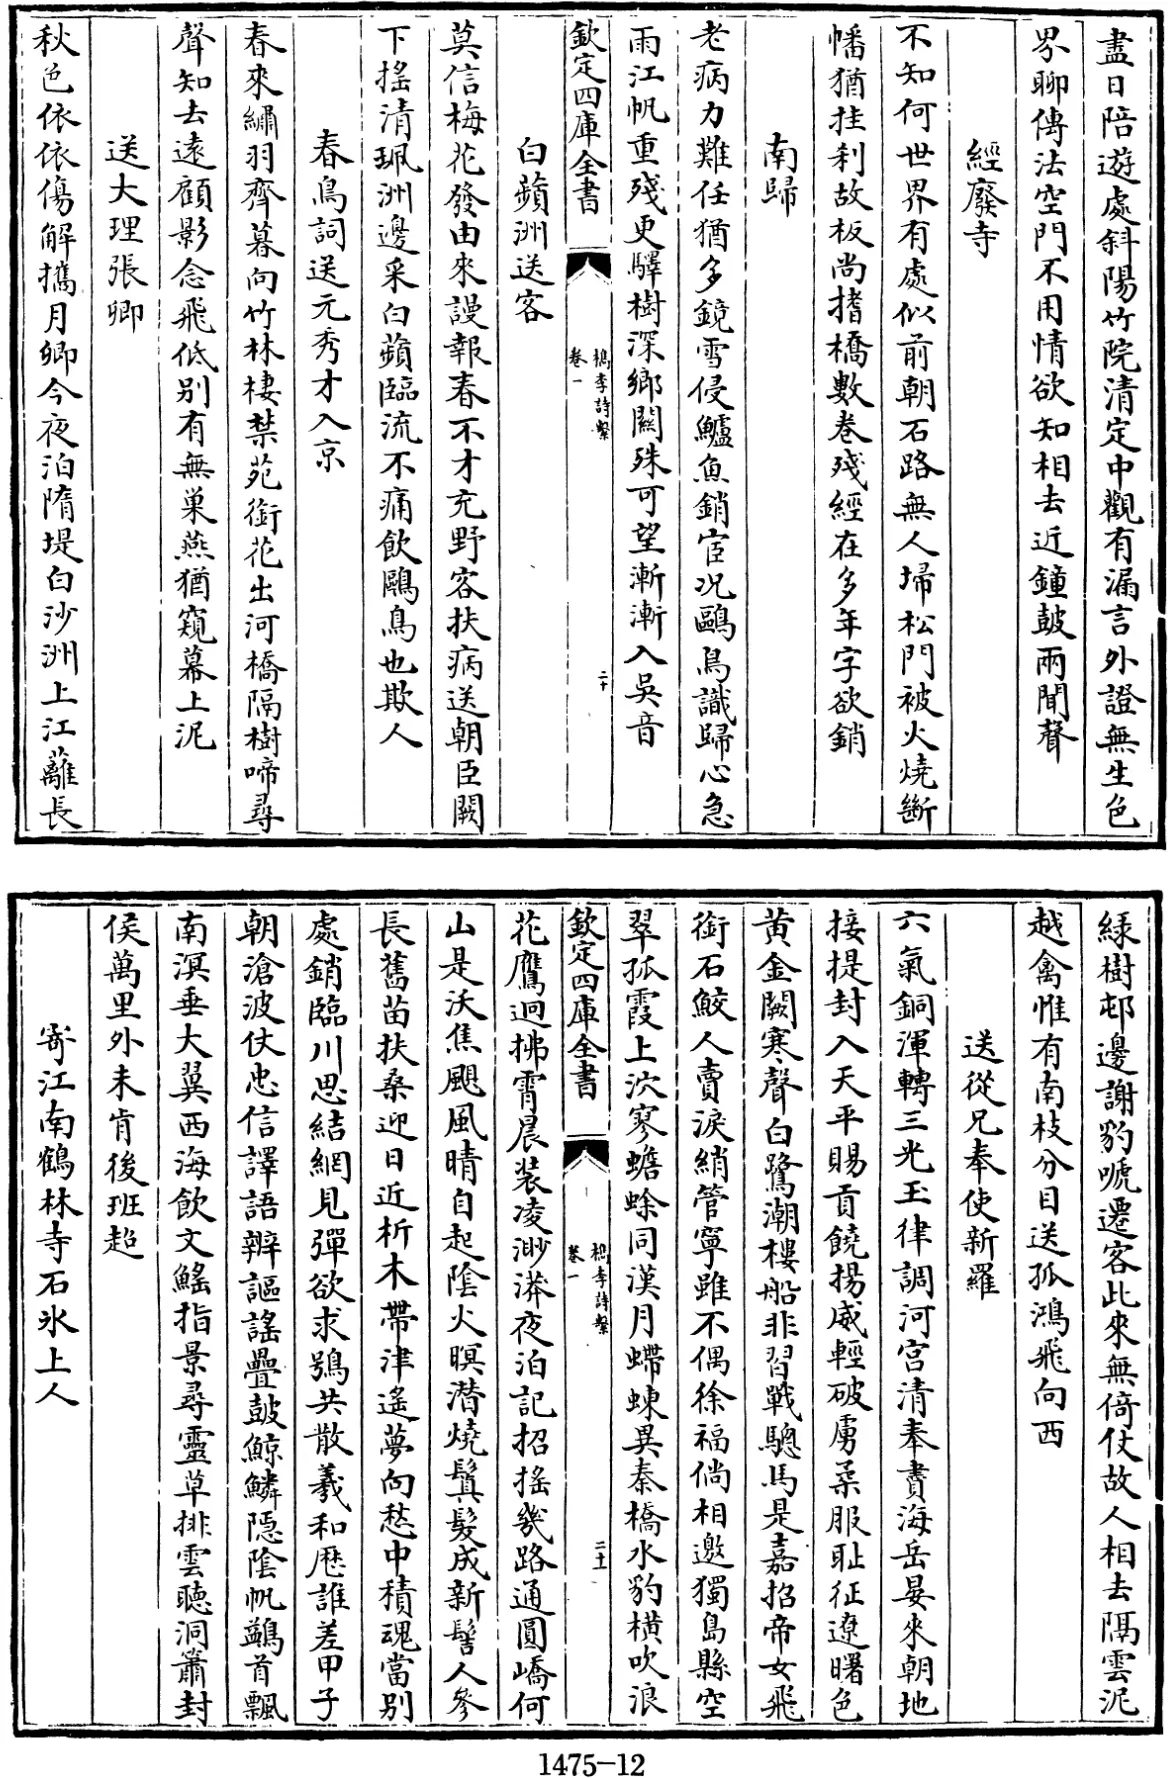 盡日陪遊處斜陽竹院清定中觀有漏言外證無生色
界聊傳法空門不用情欲知相去近鐘鼓兩聞聲
經廢寺
不知何世界有處似前朝石路無人埽松門被火燒斷
幡猶挂刹故板尚搘橋數卷殘經在多年字欲銷
南歸
老病力難任猶多鏡雪侵鱸魚銷宦况鷗鳥識歸心急
雨江帆重殘更驛樹深鄉關殊可望漸漸入吳音
欽定四庫全書
檇李詩繫
卷一
二十
白蘋洲送客
莫信梅花發由來謾報春不才充野客扶病送朝臣闕
下搖清珮洲邊采白蘋臨流不痛飲鷗鳥也欺人
春鳥詞送元秀才入京
春來繡羽齊暮向竹林棲禁苑銜花出河橋隔樹啼尋
聲知去遠顧影念飛低别有無巢燕猶窺幕上泥
送大理張卿
秋色依依傷解攜月卿今夜泊隋堤白沙洲上江蘺長
綠樹邨邊謝豹嗁遷客此來無倚仗故人相去隔雲泥
越禽惟有南枝分目送孤鴻飛向西
送從兄奉使新羅
六氣銅渾轉三光玉律調河宫清奉賮海岳晏來朝地
接提封入天平賜貢饒揚威輕破虜柔服耻征遼曙色
黄金闕寒聲白鷺潮樓船非習戰驄馬是嘉招帝女飛
銜石鮫人賣淚綃管寧雖不偶徐福倘相邀獨島縣空
翠孤霞上泬寥蟾蜍同漢月螮蝀異秦橋水豹横吹浪
欽定四庫全書
檇李詩繫
卷一
二十一
花鷹迥拂霄晨装凌渺漭夜泊記招摇幾路通圓嶠何
山是沃焦颶風晴自起陰火暝潛燒鬒髮成新髻人參
長舊苗扶桑迎日近析木帶津遙夢向愁中積魂當别
處銷臨川思結網見彈欲求鴞共散羲和厯誰差甲子
朝滄波仗忠信譯語辨謳謠疊鼓鯨鱗隱陰帆鷁首飄
南溟垂大翼西海飲文鰩指景尋靈草排雲聽洞簫封
侯萬里外未肯後班超
寄江南鶴林寺石氷上人
1475-12